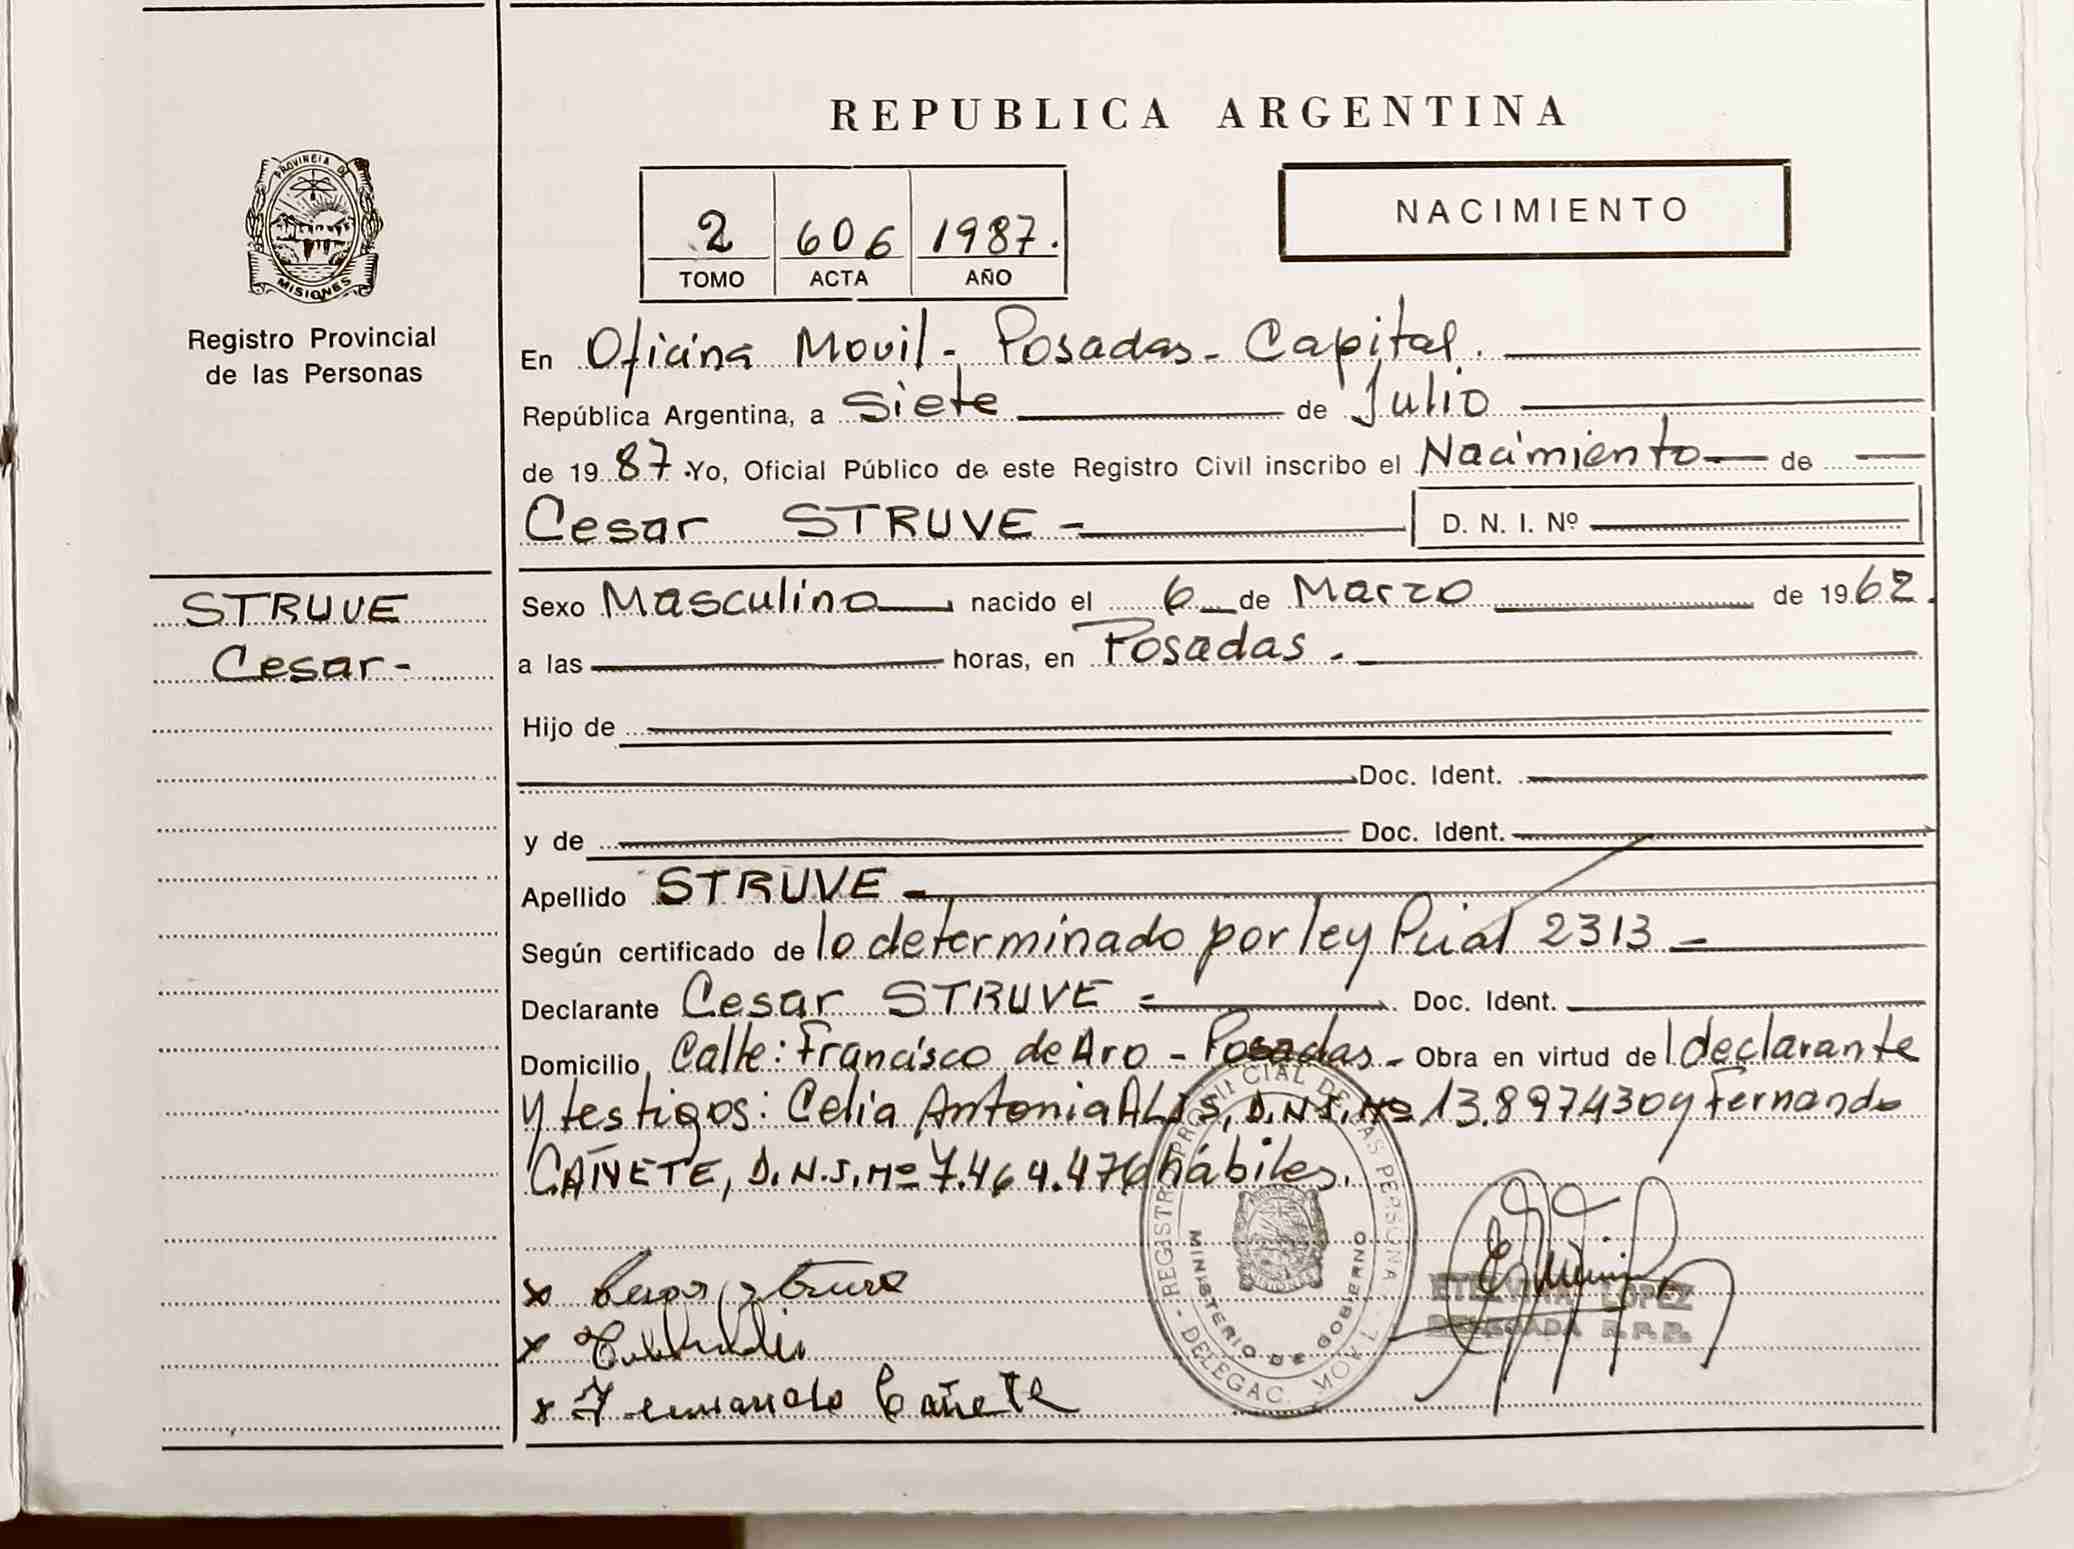 REPUBLICA ARGENTINA
PROVINCIA DE
MISIONES
Registro Provincial
de las Personas
2 606 1987.
TOMO ACTA AÑO
NACIMIENTO
En Oficina Movil - Posadas - Capital.
República Argentina, a Siete de Julio
de 19 87 Yo, Oficial Público de este Registro Civil inscribo el Nacimiento de
Cesar STRUVE - D. N. I. Nº
STRUVE
Cesar -
Sexo Masculino nacido el 6 de Marzo de 19 62.
a las horas, en Posadas.
Hijo de
Doc. Ident.
y de Doc. Ident.
Apellido STRUVE -
Según certificado de lo determinado por ley Pcial 2313 -
Declarante Cesar STRUVE = Doc. Ident.
Domicilio Calle: Francisco de Aro - Posadas - Obra en virtud de l declarante
y testigos: Celia Antonia ALIS, D.N.I. Nº 13.897430 y Fernando
CAÑETE, D.N.I. Nº 7.464.476 hábiles.
x Cesar Struve
x
x Fernando Cañete
REGISTRO PROVINCIAL DE LAS PERSONAS
MINISTERIO DE GOBIERNO
DELEGAC. MOVIL
ETELVINA LOPEZ
DELEGADA R.P.P.